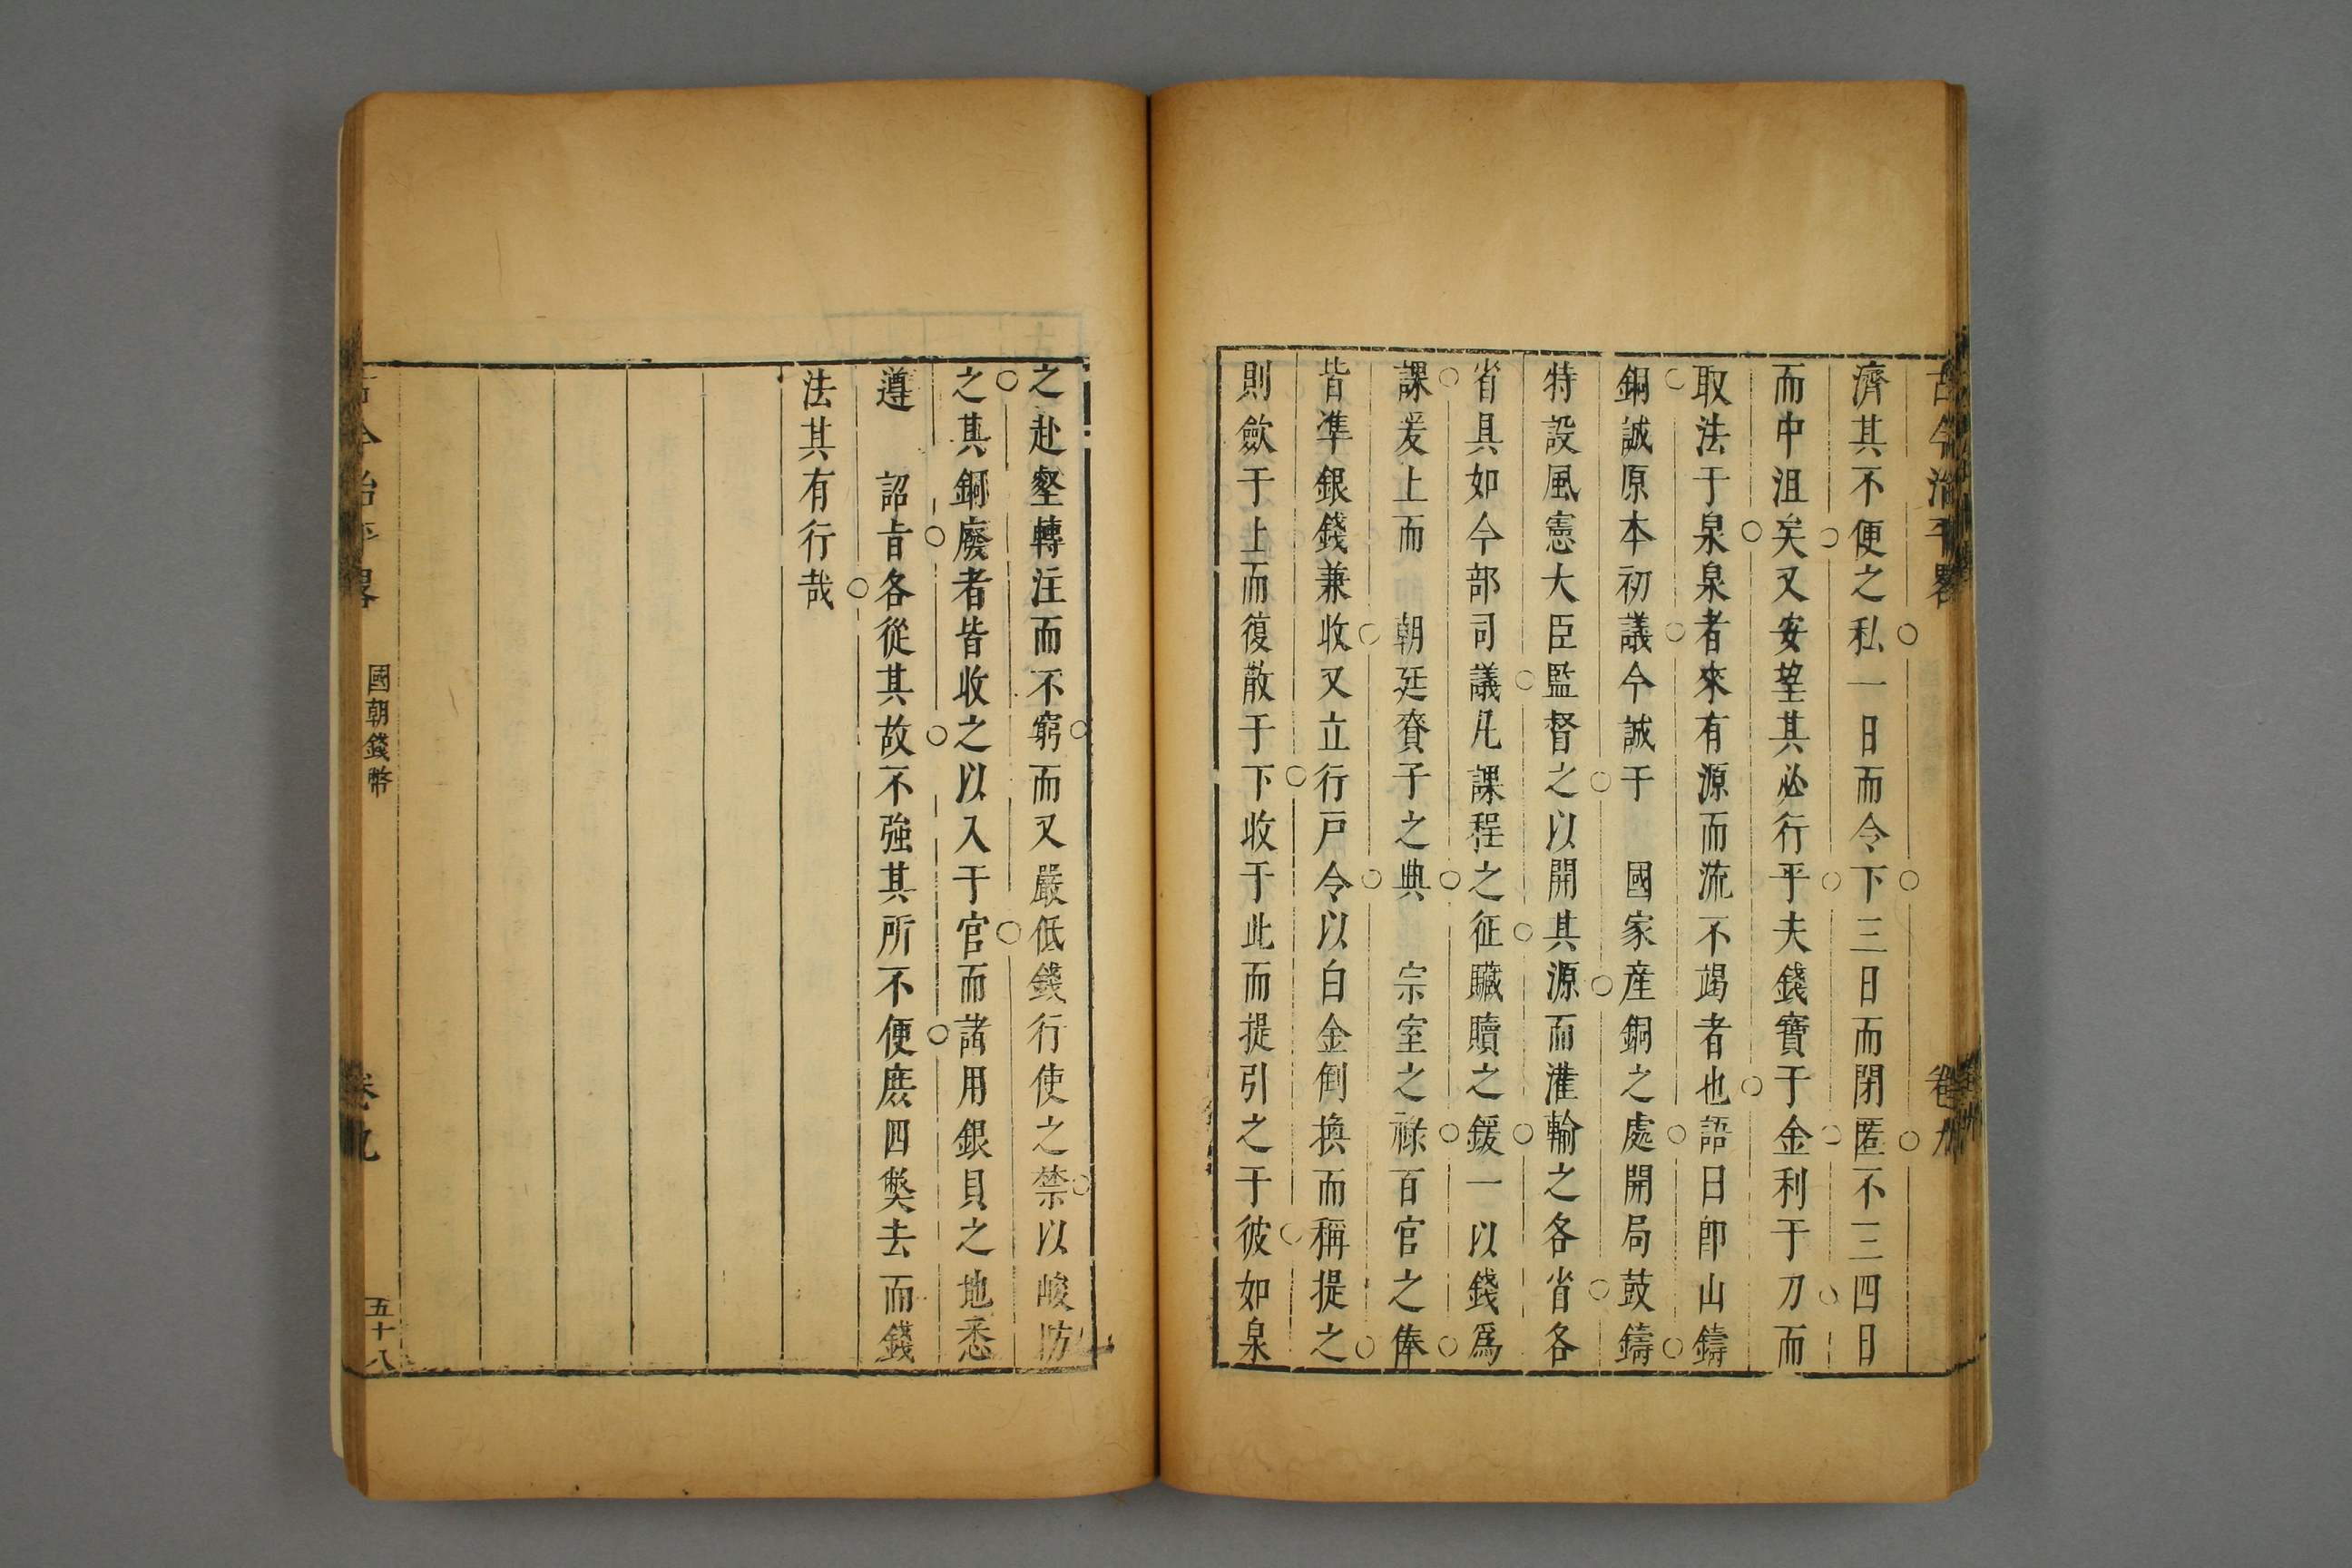 古今治平畧 卷九
濟其不便之私一日而令下三日而閉匿不三四日
而中沮矣又安望其必行乎夫錢寶于金利于刀而
取法于泉泉者來有源而流不竭者也語曰卽山鑄
銅誠原本初議今誠于 國家產銅之處開局鼓鑄
特設風憲大臣監督之以開其源而灌輸之各省各
省具如今部司議凡課程之征贓贖之鍰一以錢爲
課爰上而 朝廷賚子之典 宗室之祿百官之俸
皆準銀錢兼收又立行戸令以白金倒換而稱提之
則歛于上而復散于下收于此而提引之于彼如泉
之赴壑轉注而不窮而又嚴低錢行使之禁以峻防
之其銅廢者皆收之以入于官而諸用銀貝之地悉
遵 詔旨各從其故不強其所不便庶四獘去而錢
法其有行哉
古今治平畧 國朝錢幣 卷九 五十八